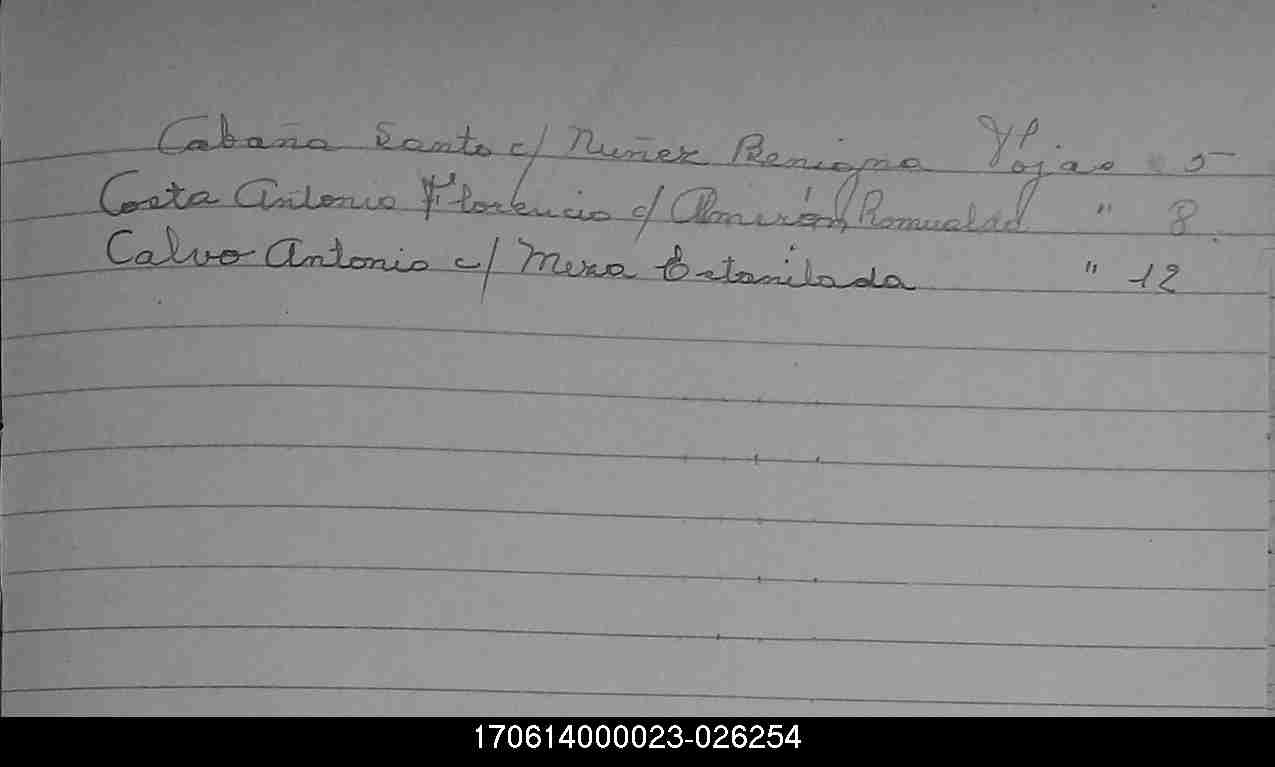 Cabaña Santo c/ Nuñez Benigna Fojas 5
Costa Antonio Florencio c/ Almirón Romualda " 8
Calvo Antonio c/ Meza " 12
170614000023-026254